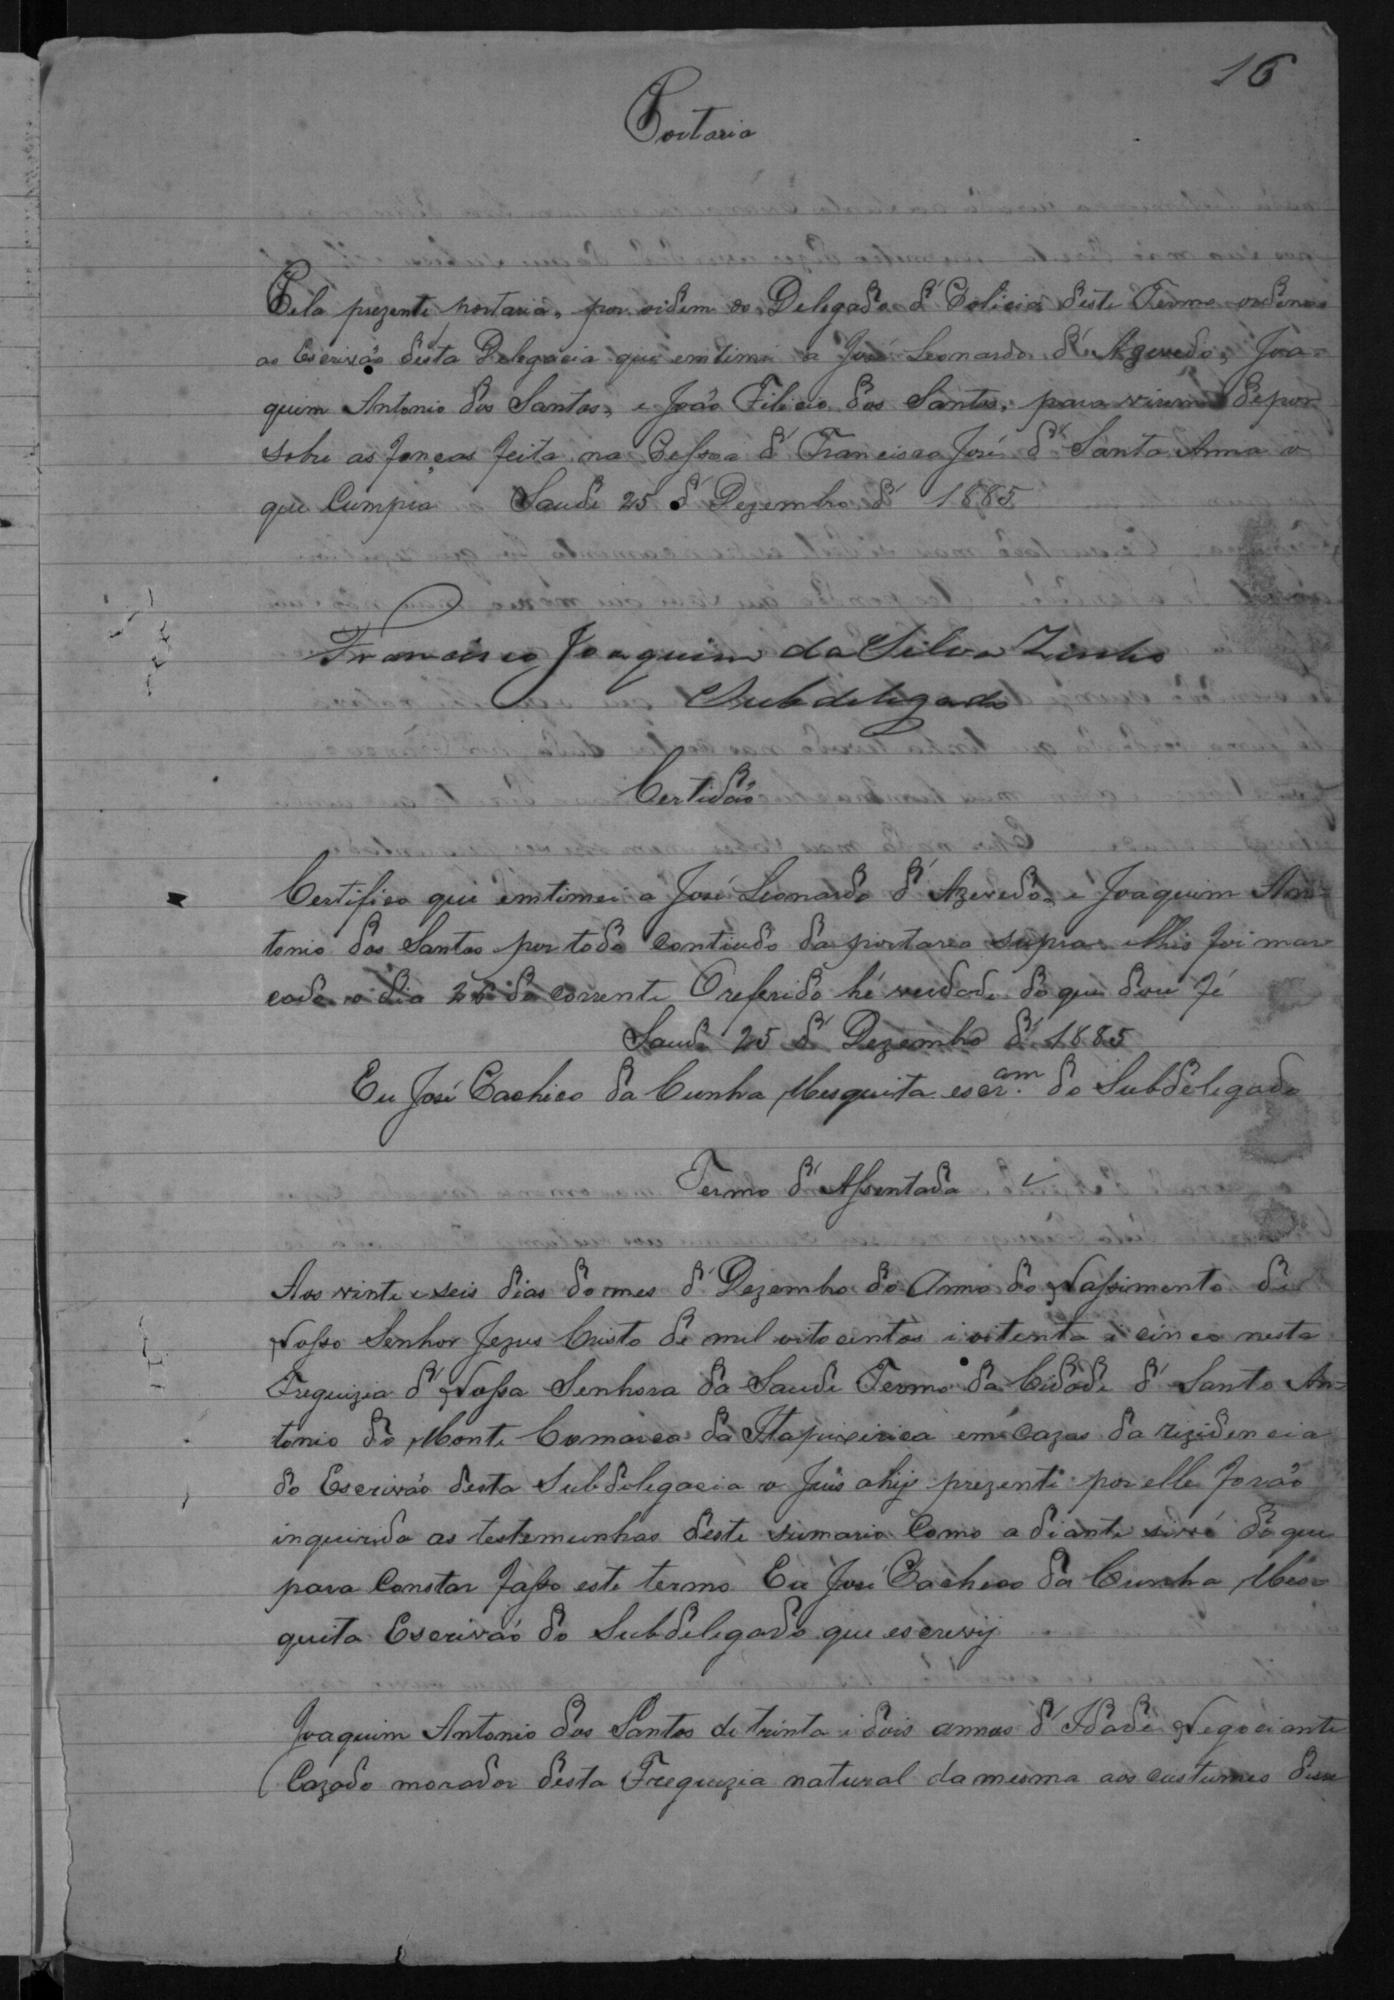 16
Portaria
Pela prezente portaria, por ordem do Delegado d' Policia deste Termo ordeno
ao Escrivão desta Delegacia que emtime a José Leonardo d' Azevedo, Joa-
quim Antonio dos Santos, e João Filicio dos Santos, para virem depor
sobre as feita na Pessoa d' Francisco José d' Santa Anna o
que Cumpra Saude 25 d' Dezembro d' 1885
Francisco Joaquim da Silva
Subdelegado
Certidão
Certifico que emtimei a José Leonardo d' Azevedo, e Joaquim An-
tonio dos Santos por todo contiudo da portaria supra elhis foi mar
cado o dia 26 do corrente O referido hé verdade do que dou fé
Saude 25 d' Dezembro d' 1885
Eu José Pacheco da Cunha Mesquita escr.am do Subdelegado
Termo d' Assentada
Aos vinte e seis dias do mes d' Dezembro do Anno do Nassimento de
Nosso Senhor Jezus Cristo de mil oitocentos i oitenta i cinco nesta
Freguizia d' Nossa Senhora da Saude Termo da Cidade d' Santo An-
tonio do Monte Comarca da Itapixirica em cazas da rizidencia
do Escrivão desta Subdelegacia o Juis ahij prezente por elle forão
inquirido as testemunhas deste sumario Como a diante do que
para Constar fasso este termo Eu José Pacheco da Cunha Mes-
quita Escrivão do Subdelegado que escrevij
Joaquim Antonio dos Santos de trinta i dois annos d' Idade Negociante
Cazado morador desta Freguizia natural da mesma aos custumes disse